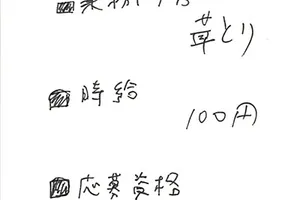 ■業務内容
草とり
■時給
100円
■応募資格